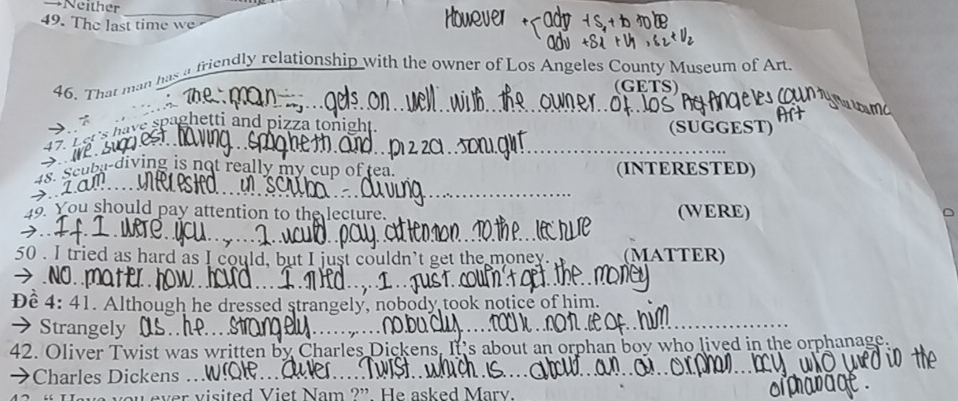 →Neither
49. The last time we
However + adv + S, + to be
adv + S1 + V1, S2 + V2
46. That man has a friendly relationship with the owner of Los Angeles County Museum of Art.
(GETS)
→ The man gets on well with the owner of los Angeles county museum Art
47. Let's have spaghetti and pizza tonight. (SUGGEST)
→ We suggest having spaghetti and pizza tonight
48. Scuba-diving is not really my cup of tea. (INTERESTED)
→ I am interested in scuba - diving
49. You should pay attention to the lecture. (WERE)
→ If I were you, I would pay attention to the lecture
50 . I tried as hard as I could, but I just couldn't get the money. (MATTER)
→ No matter how hard I tried, I just couldn't get the money
Đề 4: 41. Although he dressed strangely, nobody took notice of him.
→ Strangely as he strangely, nobody took notice of him
42. Oliver Twist was written by Charles Dickens. It's about an orphan boy who lived in the orphanage.
→Charles Dickens wrote Oliver Twist which is about an orphan boy who lived in the orphanage.
you ever visited Viet Nam ?". He asked Mary.